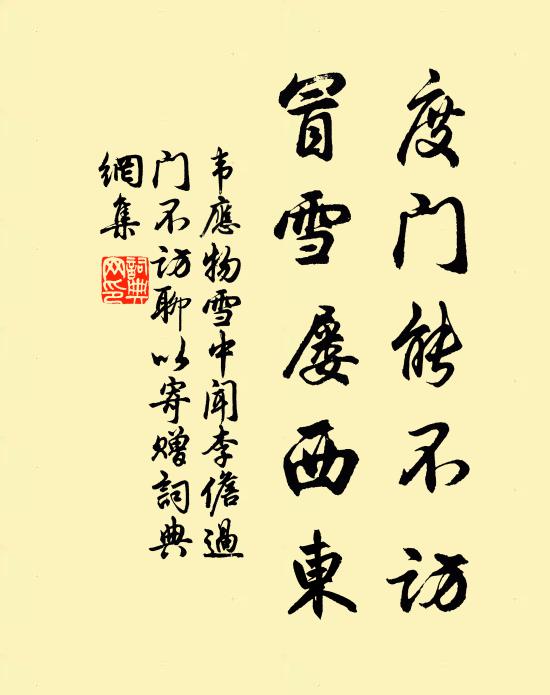 度门能不访
冒雪屡西東
韦應物雪中闻李儋過
门不访聊以寄赠詞典
網集
詞典网印